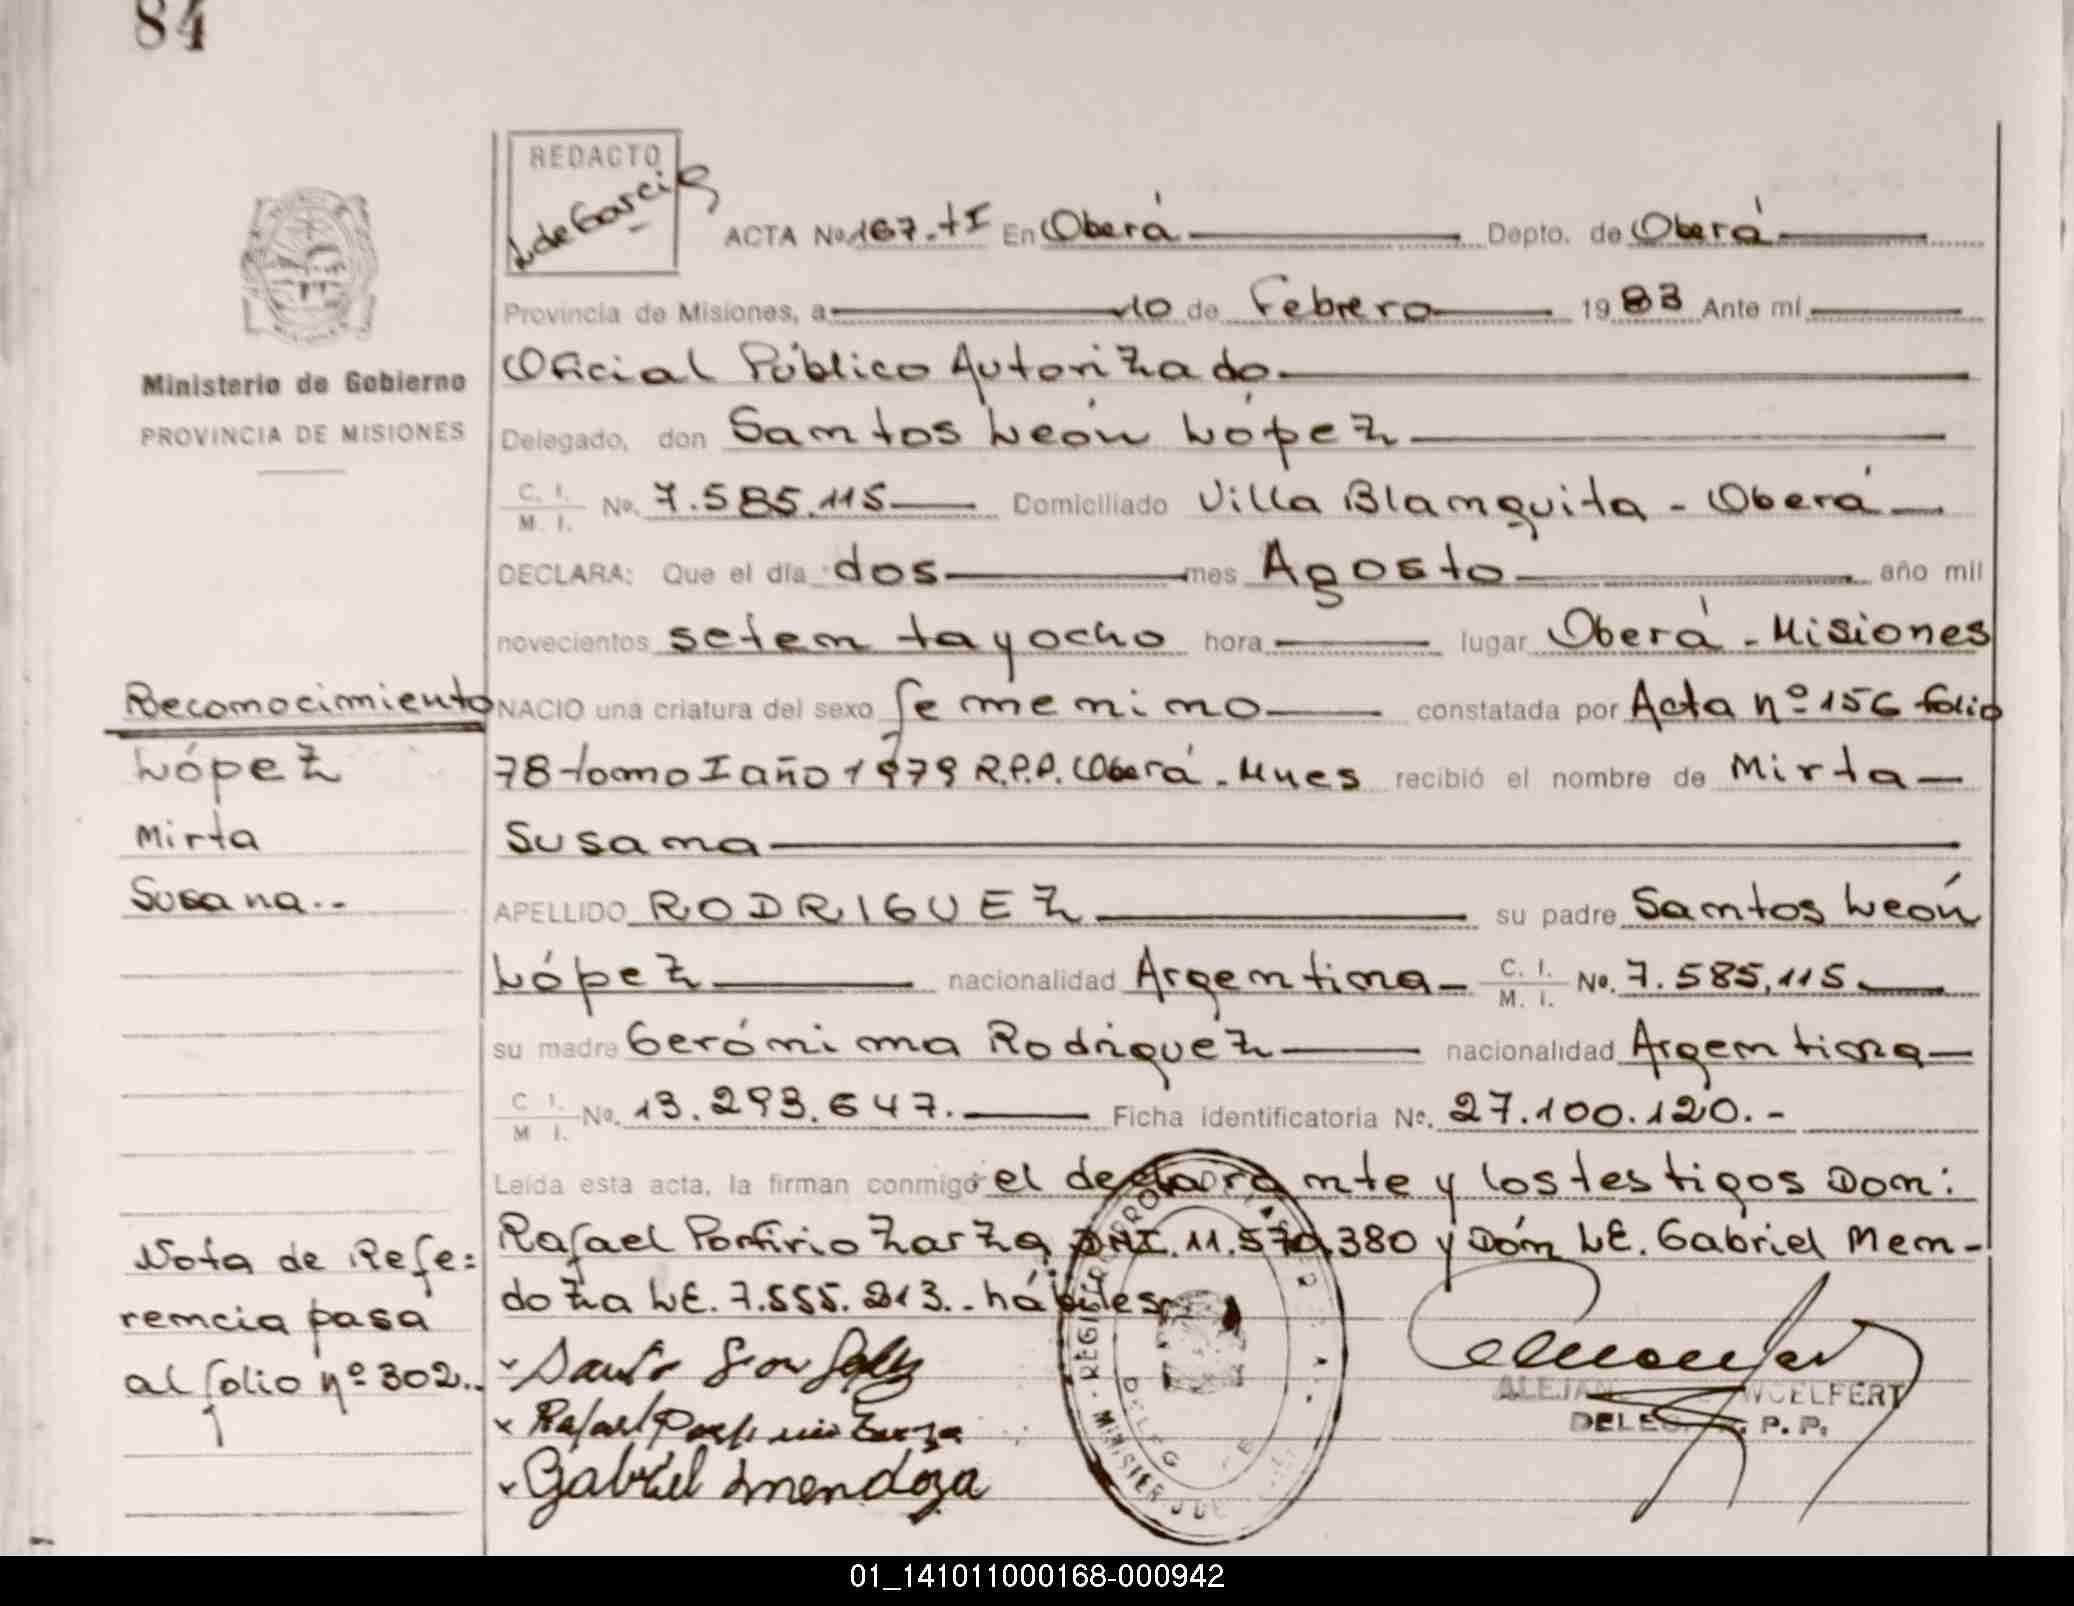 84
REDACTO
L. de Garcia
ACTA No. 167. tI En Oberá Depto. de Oberá
Provincia de Misiones, a 10 de Febrero 1983 Ante mí
Oficial Público Autorizado
Ministerio de Gobierno
PROVINCIA DE MISIONES
Delegado, don Santos León López
C. I. M. I. No. 7.585.115 Domiciliado Villa Blanquita - Oberá
DECLARA: Que el día dos mes Agosto año mil
novecientos setenta y ocho hora lugar Oberá - Misiones
Reconocimiento
López
Mirta
Susana..
NACIO una criatura del sexo femenino constatada por Acta nº 156 folio
78 tomo I año 1979 R.P.P. Oberá - Mnes recibió el nombre de Mirta
Susana
APELLIDO RODRIGUEZ su padre Santos León
López nacionalidad Argentina C. I. M. I. No. 7.585.115
su madre Gerónima Rodriguez nacionalidad Argentina
C I. M I. No. 13.293.647. Ficha identificatoria No. 27.100.120.-
Leída esta acta, la firman conmigo el declarante y los testigos Don:
Rafael Porfirio Zarza DNI. 11.570.380 y Dón LE. Gabriel Men-
doza LE. 7.555.213.- hábiles
Nota de Refe=
rencia pasa
al folio nº 302..
Rafael Porfirio Zarza
Gabriel Mendoza
WOELFERT
P. P.
01_141011000168-000942